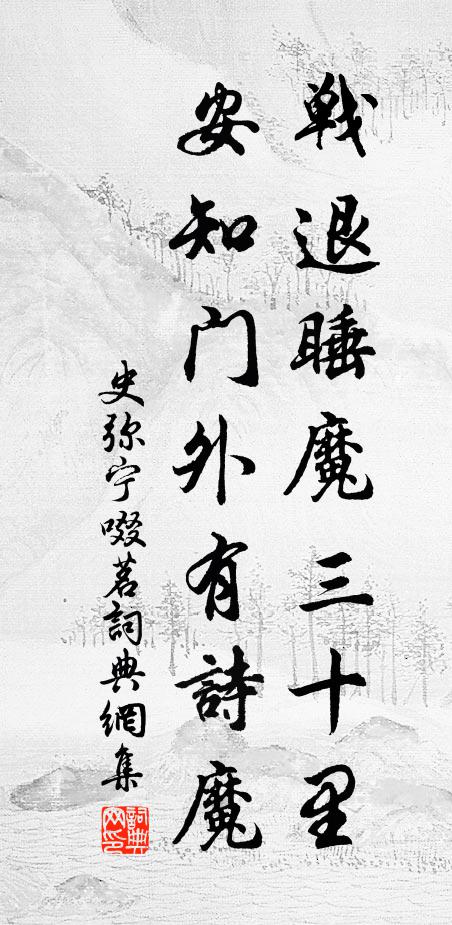 戦退睡魔三十里
安知门外有詩魔
史弥宁啜茗詞典網集
詞典网印